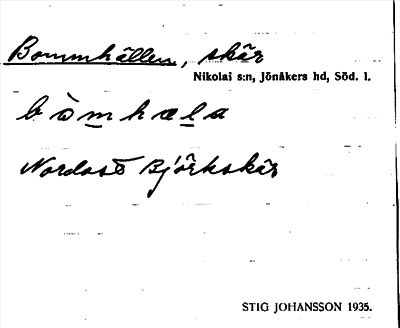 Bommhällen, skär
Nikolai s:n, Jönåkers hd, Söd. l.
b ò m h æ l a
Nordost Björkskär
STIG JOHANSSON 1935.